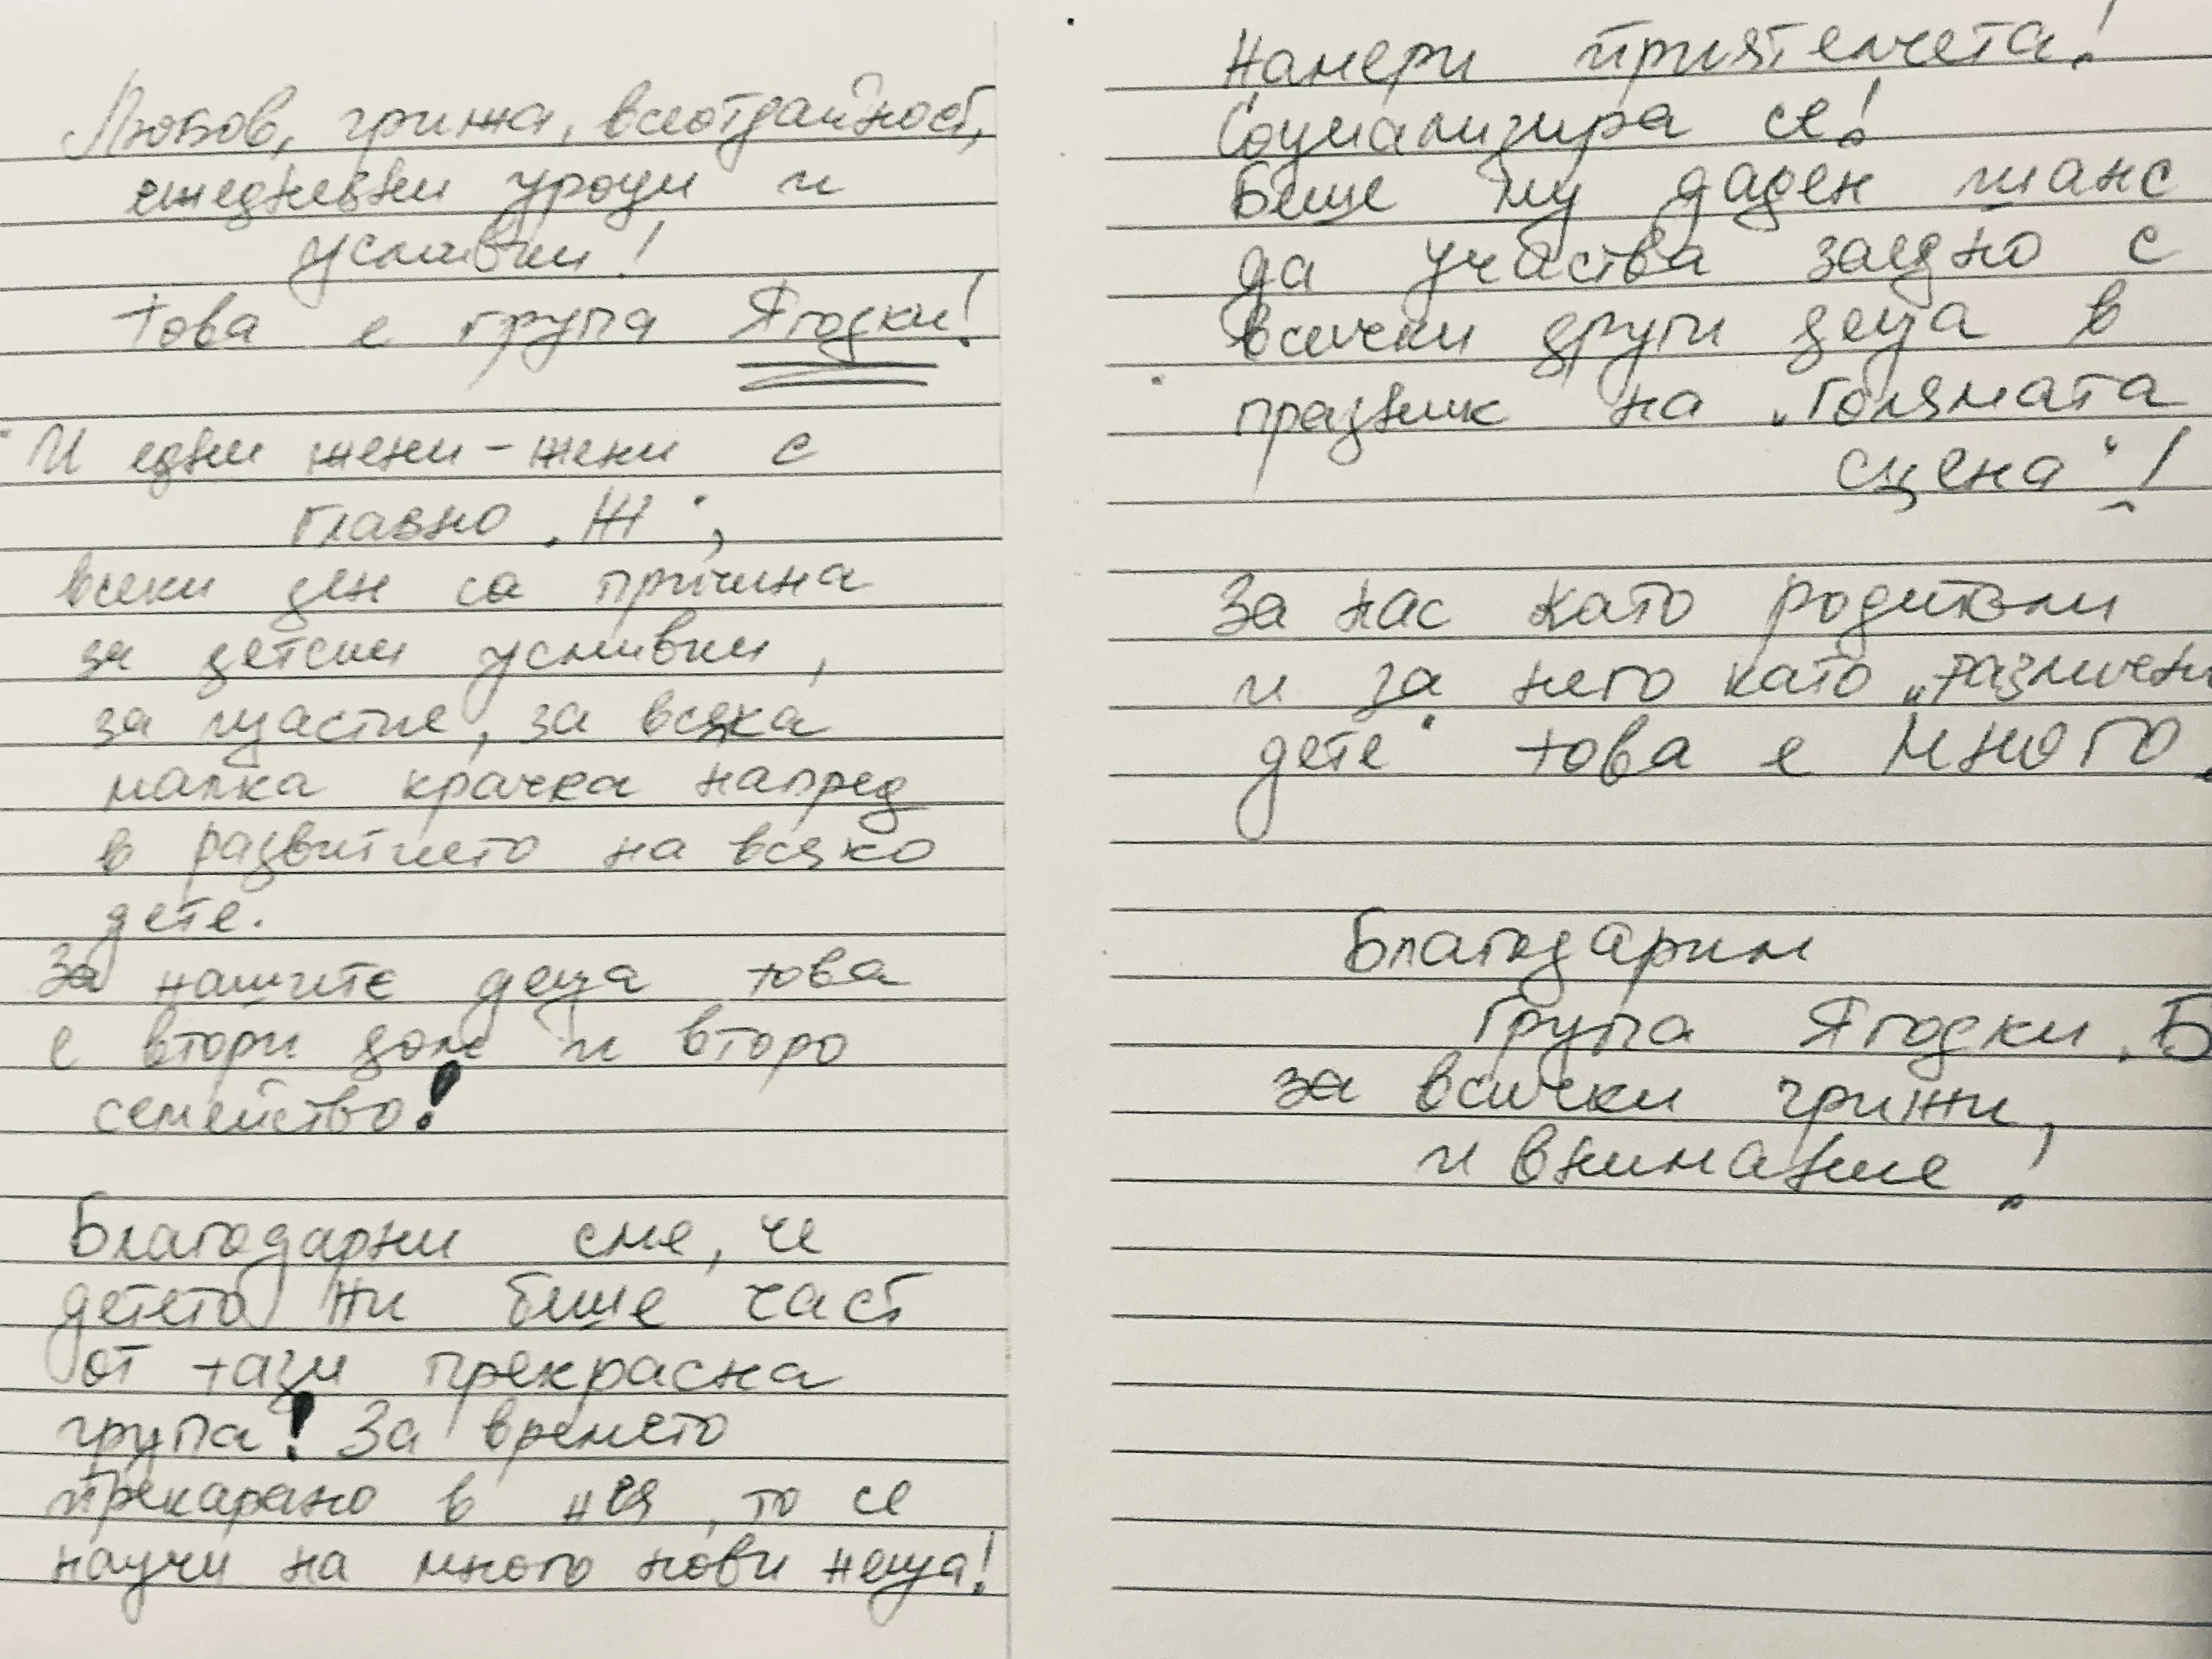 Любов, грижа, всеотдайност,
ежедневни уроци и
усмивки!
Това е група Ягодки!
И едни жени - жени с
главно „Ж“,
всеки ден са причина
за детски усмивки,
за щастие, за всяка
малка крачка напред
в развитието на всяко
дете.
За нашите деца това
е втори дом и второ
семейство!
Благодарни сме, че
детето ни беше част
от тази прекрасна
група! За времето
прекарано в нея, то се
научи на много нови неща!
Намери приятелчета!
Социализира се!
Беше му даден шанс
да участва заедно с
всички други деца в
празник на „голямата
сцена“!
За нас като родители
и за него като „различни
дете“ това е МНОГО.
Благодарим
Група Ягодки „Б
за всички грижи,
и внимание!